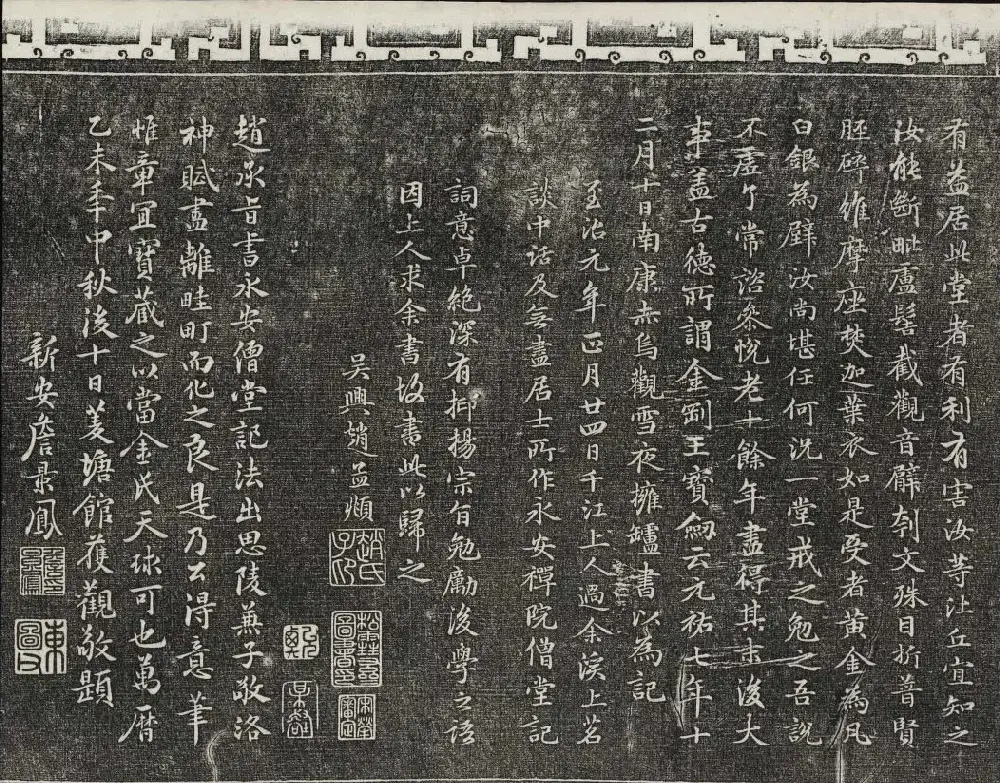 有益居此堂者有利有害汝等比丘宜知之
汝能斷毗盧髻截觀音臂刳文殊目折普賢
脛碎維摩座焚加葉衣如是受者黃金為瓦
白銀為壁汝尚堪任何況一堂戒之勉之吾說
不虛了常諮參悅老十餘年盡得其末後大
事蓋古德所謂金剛王寶劒云元祐七年十
二月十日南康赤烏觀雪夜擁罏書以為記
至治元年正月廿四日千江上人過余溪上茗
談中話及無盡居士所作永安禪院僧堂記
詞意卓絕深有抑揚宗旨勉勵後學之語
因上人求余書故書此以歸之
吳興趙孟頫
趙氏子昂
松雪齋圖書印
趙承旨書永安僧堂記法出思陵兼子敬洛
神賦盡離畦町而化之良是乃公得意筆
惟章宜寶藏之以當金氏天球可也萬曆
乙未年中秋後十日菱塘館獲觀敬題
新安詹景鳳
詹景鳳
東圖父